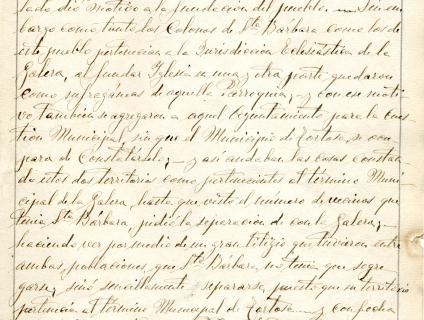 lado dió motivo a la fundación del pueblo. — Sin em-
bargo como tanto las Colonas de Sta Bárbara como los de
este pueblo pertenecian a la Jurisdicción Eclesiástica de la
Galera, al fundar Iglesia en una y otra parte quedaron
como sufragáneas de aquella Parroquia; — y con ese moti-
vo, también se agregaron a aquel Ayuntamiento para la Ges-
tión Municipal, sin que el Municipio de Tortosa, se ocu-
para de Constatárselo; — y asi andaban las cosas constan-
do estos dos territorios como pertenecientes al término Muni-
cipal de la Galera, hasta que visto el número de vecinos que
tenia Sta Bárbara, pidió la separación de con la Galera; —
haciendo ver por medio de un gran litigio que tuvieron entre
ambas poblaciones, que Sta Bárbara no tenia que segre-
garse, sinó sencillamente separarse, puesto que su territorio
pertenecia al término Municipal de Tortosa — y con fecha